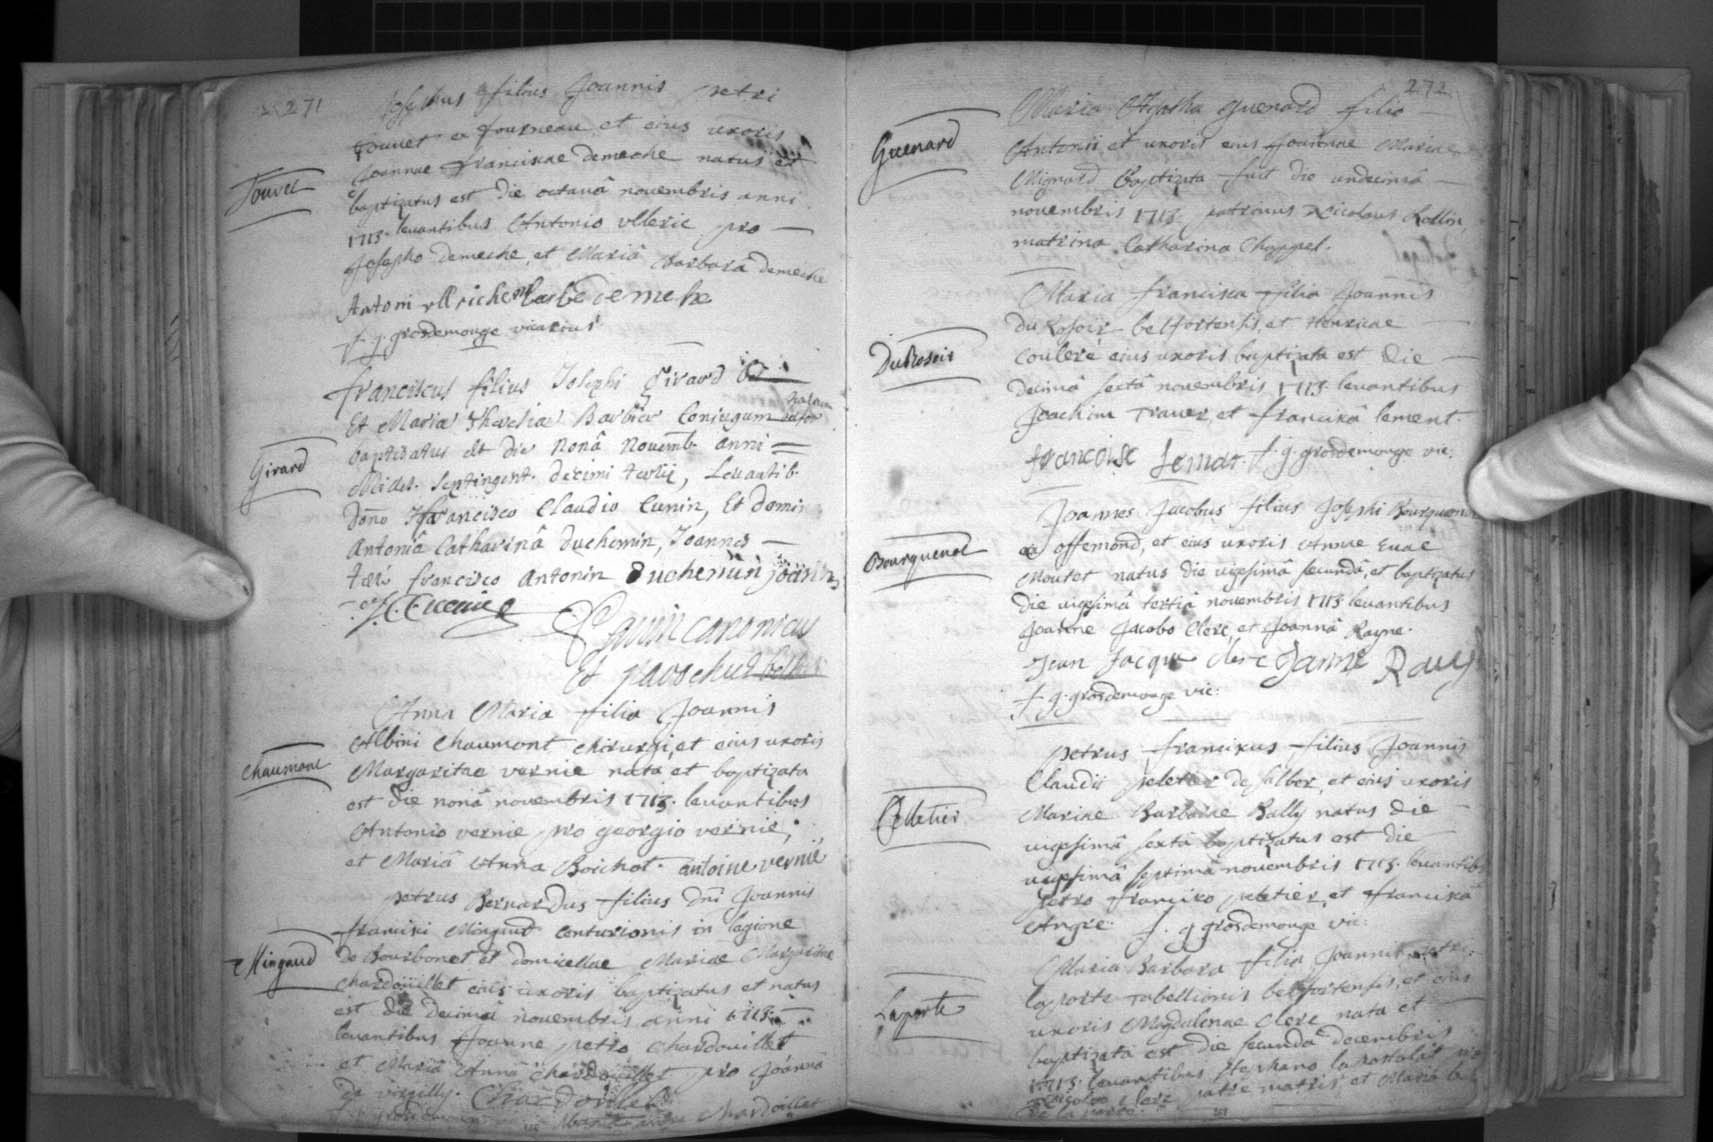 271
Josephus filius Joannis petri
Jouvet ex fourneau et eius uxoris
Joannae franciscae demeche natus et
Jouvet
baptizatus est die octavâ novembris anni
1713. levantibus Antonio ulleric pro
Josepho demeche, et Mariâ barbarâ demeche
Antoni ullriche barbe demeche
f. g. grosdemouge vicarius
franciscus filius Josephi Girard
Et Maria Barbier Coniugum
baptisatus est die nonâ Novemb. anni
Girard
Millés. Septingent. decimi tertii, Levantib.
Dōno francisco Claudio Cunin, Et domin
Antoniâ Catharinâ Duchemin, Joannes
francisco Antonin Duchemin
Cunin canonicus
Et
Anna Maria filia Joannis
Albini Chaumont chirurgi, et eius uxoris
Chaumont
Margaritae vernie nata et baptizata
est die nonâ novembris 1713. levantibus
Antonio vernie pro georgio vernie,
et Mariâ Anna Boichot. antoine vernie
petrus Bernardus filius dni Joannis
francisci Mingaud centurionis in legione
Mingaud
de Bourbonet et domicellae Mariae Margaritae
chardoüillet eius uxoris baptizatus et natus
est die decima novembris anni 1713.
levantibus Joanne petro chardouillet
et Mariâ Annâ chardouillet pro Joannâ
de Chardouillet
272
Maria Agatha guenard filia
Guenard
Antonii et uxoris eius Joannae Mariae
Mignard baptizata fuit die undecimâ
novembris 1713. patrinus Nicolaus Rollin,
matrina Catharina Chappel.
Maria francisca filia Joannis
du Rosoir belfortensis, et Henricae
DuRosoir
couleré eius uxoris baptizata est die
decimâ sextâ novembris 1713. levantibus
Joachim Traver, et franciscâ lement.
francoise f. g. grosdemouge vic:
Joannes Jacobus filius Josephi Bourquenot
ex offemond, et eius uxoris Annae Evae
Bourquenot
Moutet natus die vigesimâ secundâ, et baptizatus
die vigesimâ tertiâ novembris 1713 levantibus
Joanne Jacobo Clerc, et Joannâ Rayne.
Jean Jacque clerc Janne
f. g. grosdemouge vic:
petrus franciscus filius Joannis
Claudii peletier de et eius uxoris
Pelletier
Mariae Barbarae Bally natus die
vigesimâ sextâ baptizatus est die
vigesimâ septimâ novembris 1713. levantibus
petro francisco peletier, et franciscâ
f. g grosdemouge vic:
Maria Barbara filia Joannis petri
laporte tabellionis belfortensis, et eius
Laporte
uxoris Magdalenae Clerc nata et
baptizata est die secundâ decembris
1713. levantibus Stephano
Nicolao Clerc patre matris, et Mariâ